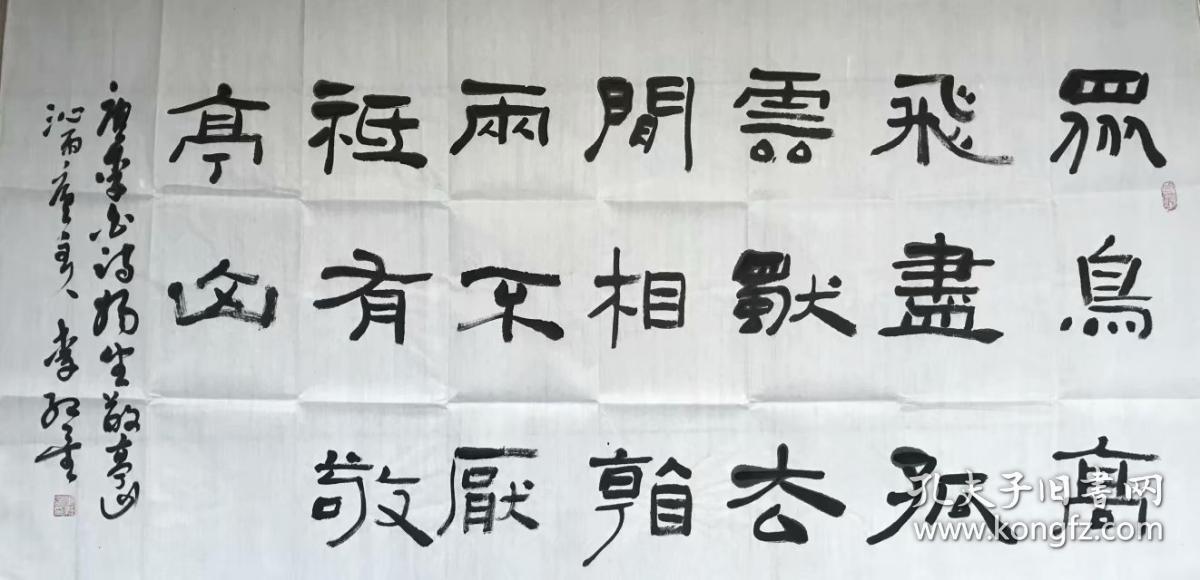 眾鳥高
飛盡孤
雲獨去
閒相看
兩不厭
祗有敬
亭山
唐李白诗独坐敬亭山
沁雨主人李书
孔夫子旧书网
www.kongfz.com